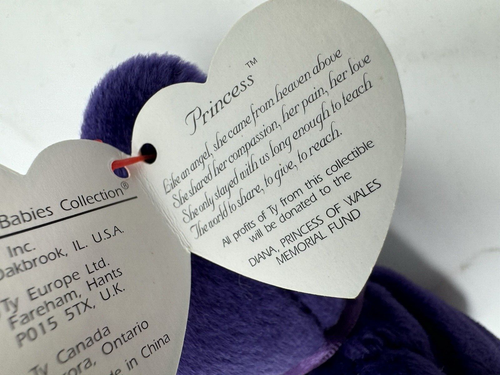 Babies Collection®
Inc.
Oakbrook, IL. U.S.A.
Ty Europe Ltd.
Fareham, Hants
PO15 5TX, U.K.
Ty Canada
Ontario
in China
Princess™
Like an angel, she came from heaven above
She shared her compassion, her pain, her love
She only stayed with us long enough to teach
The world to share, to give, to reach.
All profits of Ty from this collectible
will be donated to the
DIANA, PRINCESS OF WALES
MEMORIAL FUND